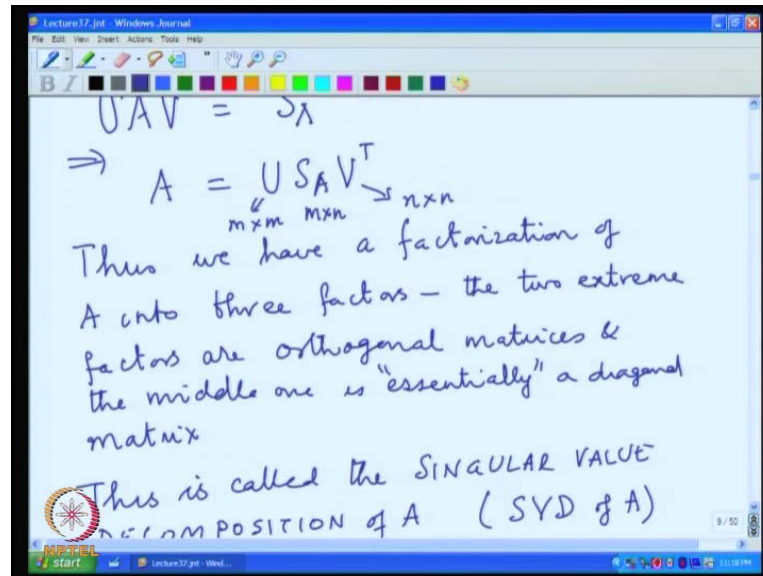 Lecture37.jnt - Windows Journal
File Edit View Insert Actions Tools Help
B I
UAV = SA
⇒ A = U S_A V^T → n×n
m×m m×n
Thus we have a factorization of
A into three factors — the two extreme
factors are orthogonal matrices &
the middle one is "essentially" a diagonal
matrix
This is called the SINGULAR VALUE
DECOMPOSITION of A (SVD of A)
9/50
NPTEL
start Lecture37.jnt - Wind... 11:18 PM